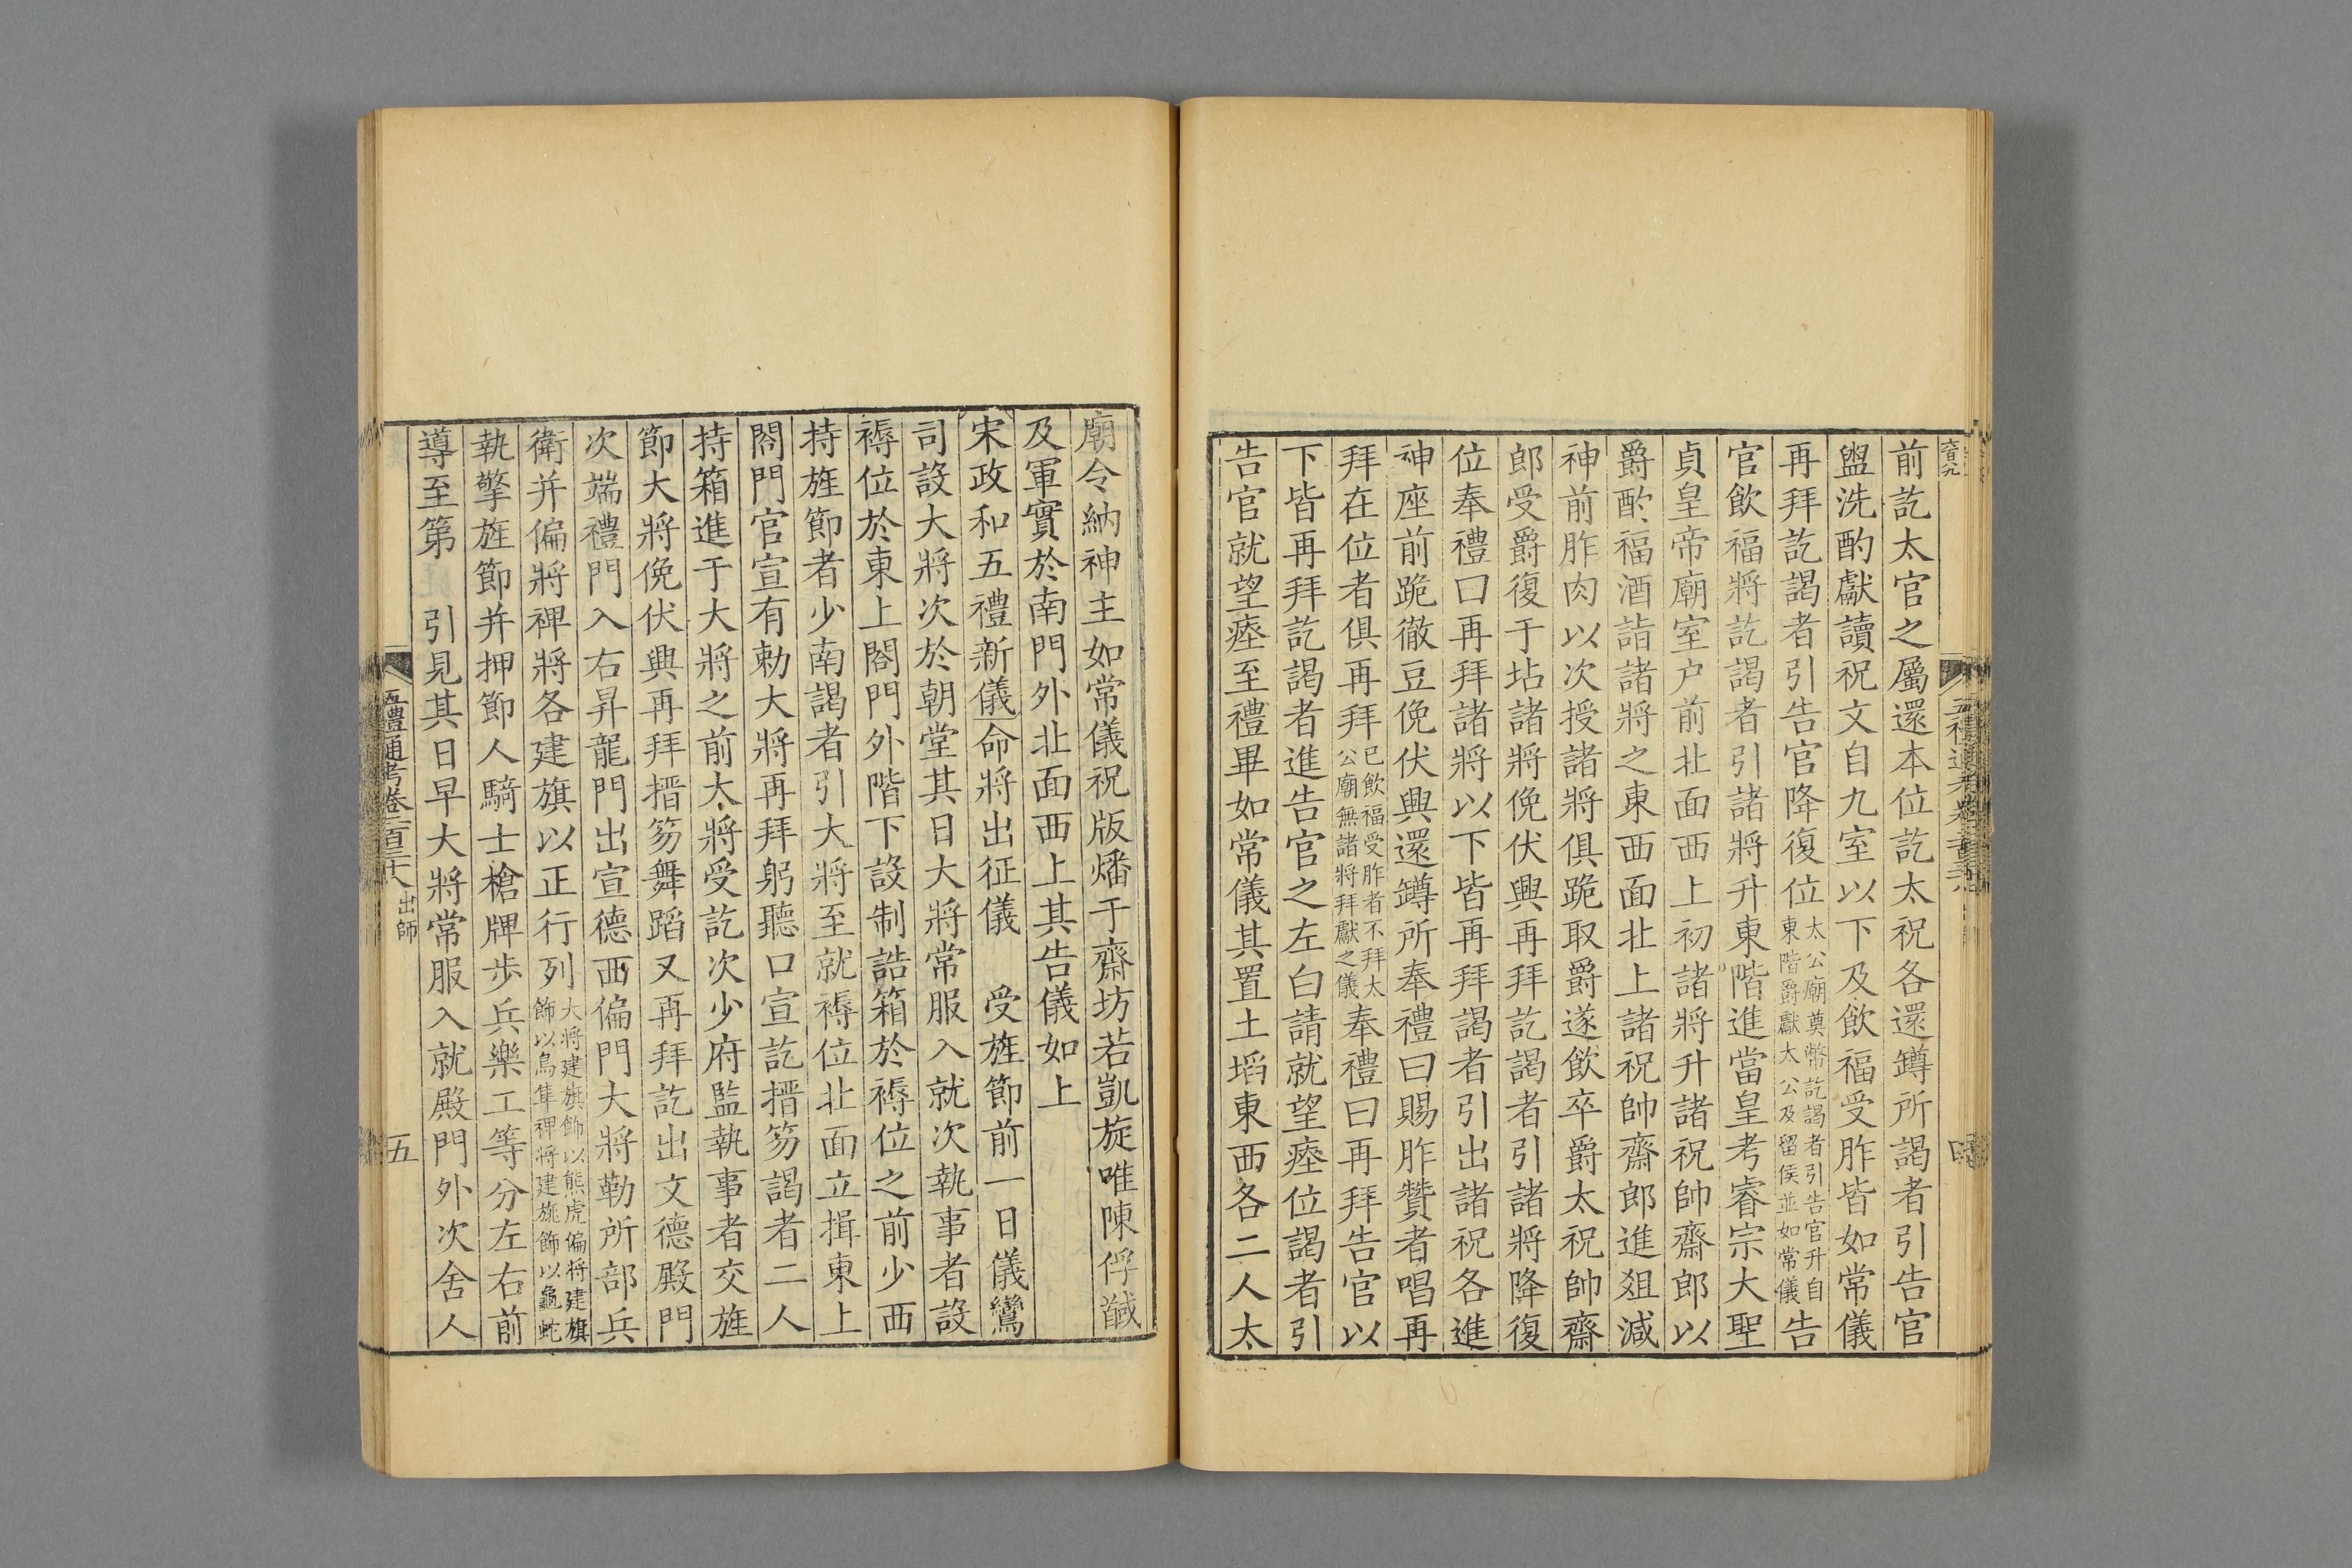 前訖太官之屬還本位訖太祝各還罇所謁者引告官
盥洗酌獻讀祝文自九室以下及飲福受胙皆如常儀
再拜訖謁者引告官降復位太公廟奠幣訖謁者引告官升自東階爵獻太公及留侯並如常儀告
官飲福將訖謁者引諸將升東階進當皇考睿宗大聖
貞皇帝廟室户前北面西上初諸將升諸祝帥齋郎以
爵酌福酒詣諸將之東西面北上諸祝帥齋郎進俎減
神前胙肉以次授諸將俱跪取爵遂飲卒爵太祝帥齋
郎受爵復于坫諸將俛伏興再拜訖謁者引諸將降復
位奉禮曰再拜諸將以下皆再拜謁者引出諸祝各進
神座前跪徹豆俛伏興還罇所奉禮曰賜胙贊者唱再
拜在位者俱再拜已飲福受胙者不拜太公廟無諸將拜獻之儀奉禮曰再拜告官以
下皆再拜訖謁者進告官之左白請就望瘞位謁者引
告官就望瘞至禮畢如常儀其置土埳東西各二人太
廟令納神主如常儀祝版燔于齋坊若凱旋唯陳俘馘
及軍實於南門外北面西上其告儀如上
宋政和五禮新儀命將出征儀 受旌節前一日儀鸞
司設大將次於朝堂其日大將常服入就次執事者設
褥位於東上閤門外階下設制誥箱於褥位之前少西
持旌節者少南謁者引大將至就褥位北面立揖東上
閤門官宣有勅大將再拜躬聽口宣訖搢笏謁者二人
持箱進于大將之前大將受訖次少府監執事者交旌
節大將俛伏興再拜搢笏舞蹈又再拜訖出文德殿門
次端禮門入右昇龍門出宣德西偏門大將勒所部兵
衛并偏將裨將各建旗以正行列大將建旗飾以熊虎偏將建旗飾以鳥隼裨將建旐飾以龜蛇
執擎旌節并押節人騎士槍牌步兵樂工等分左右前
導至第 引見其日早大將常服入就殿門外次舍人
五禮通考卷二百三十八 出師 五